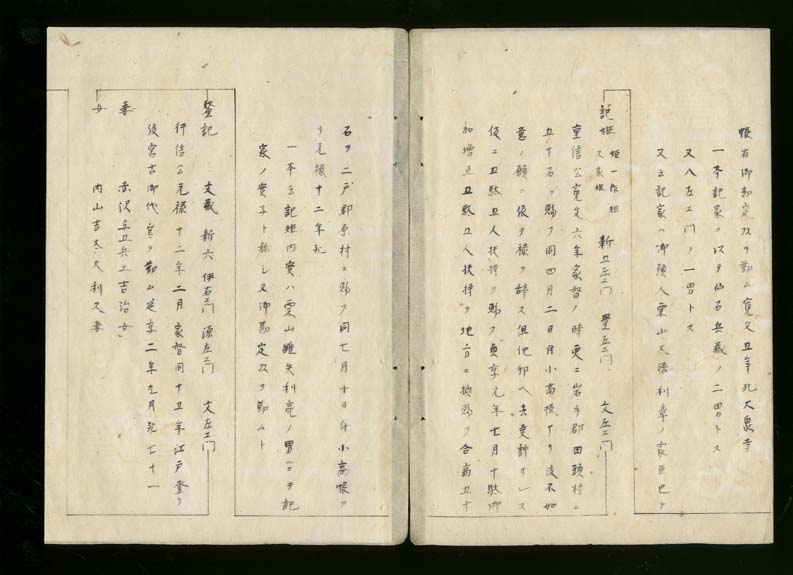 帳右御勘定頭ヲ勤ム寛文五年死大泉寺
一本記家ノ以ヲ仙石兵蔵ノ二男トス
又八左エ門ノ一男トス
又云記家ハ御預人栗山大膳利章ノ家臣也ト
記姫 姫一作姫 新五左エ門 豊左エ門 文左エ門
重信公寛文六年家督ノ時更ニ岩手郡田頭村ニ
五十石ヲ賜フ同四月二日付小高帳アリ後不如
意ノ願ニ依テ禄ヲ辞ス但他邦ヘ去更許サレス
後ニ五駄五人扶持ヲ賜フ貞享元年七月十駄御
加増五五駄五人扶持ヲ地方ニ換賜フ合高五十
石ヲ二戸郡原村ニ賜フ同七月十日付小高帳ア
リ元禄十二年死
一本云記姫内実ハ栗山雖失利亮ノ男ニテ記
家ノ実子ト称シ又御勘定頭ヲ勤ムト
整記 文蔵 新六 伊右エ門 源左エ門 文左エ門
行信公元禄十二年二月家督同十五年江戸登リ
後宮古御代官ヲ勤ム延享二年九月死七十一
妻 赤沢五兵エ吉治女
女 内山吉太夫利久妻